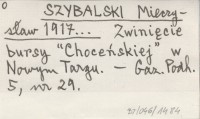 O
SZYBALSKI Mieczy-
sław 1917... Zwinięcie
bursy "Choceńskiej" w
Nowym Targu. — Gaz. Podh.
5, nr 29.